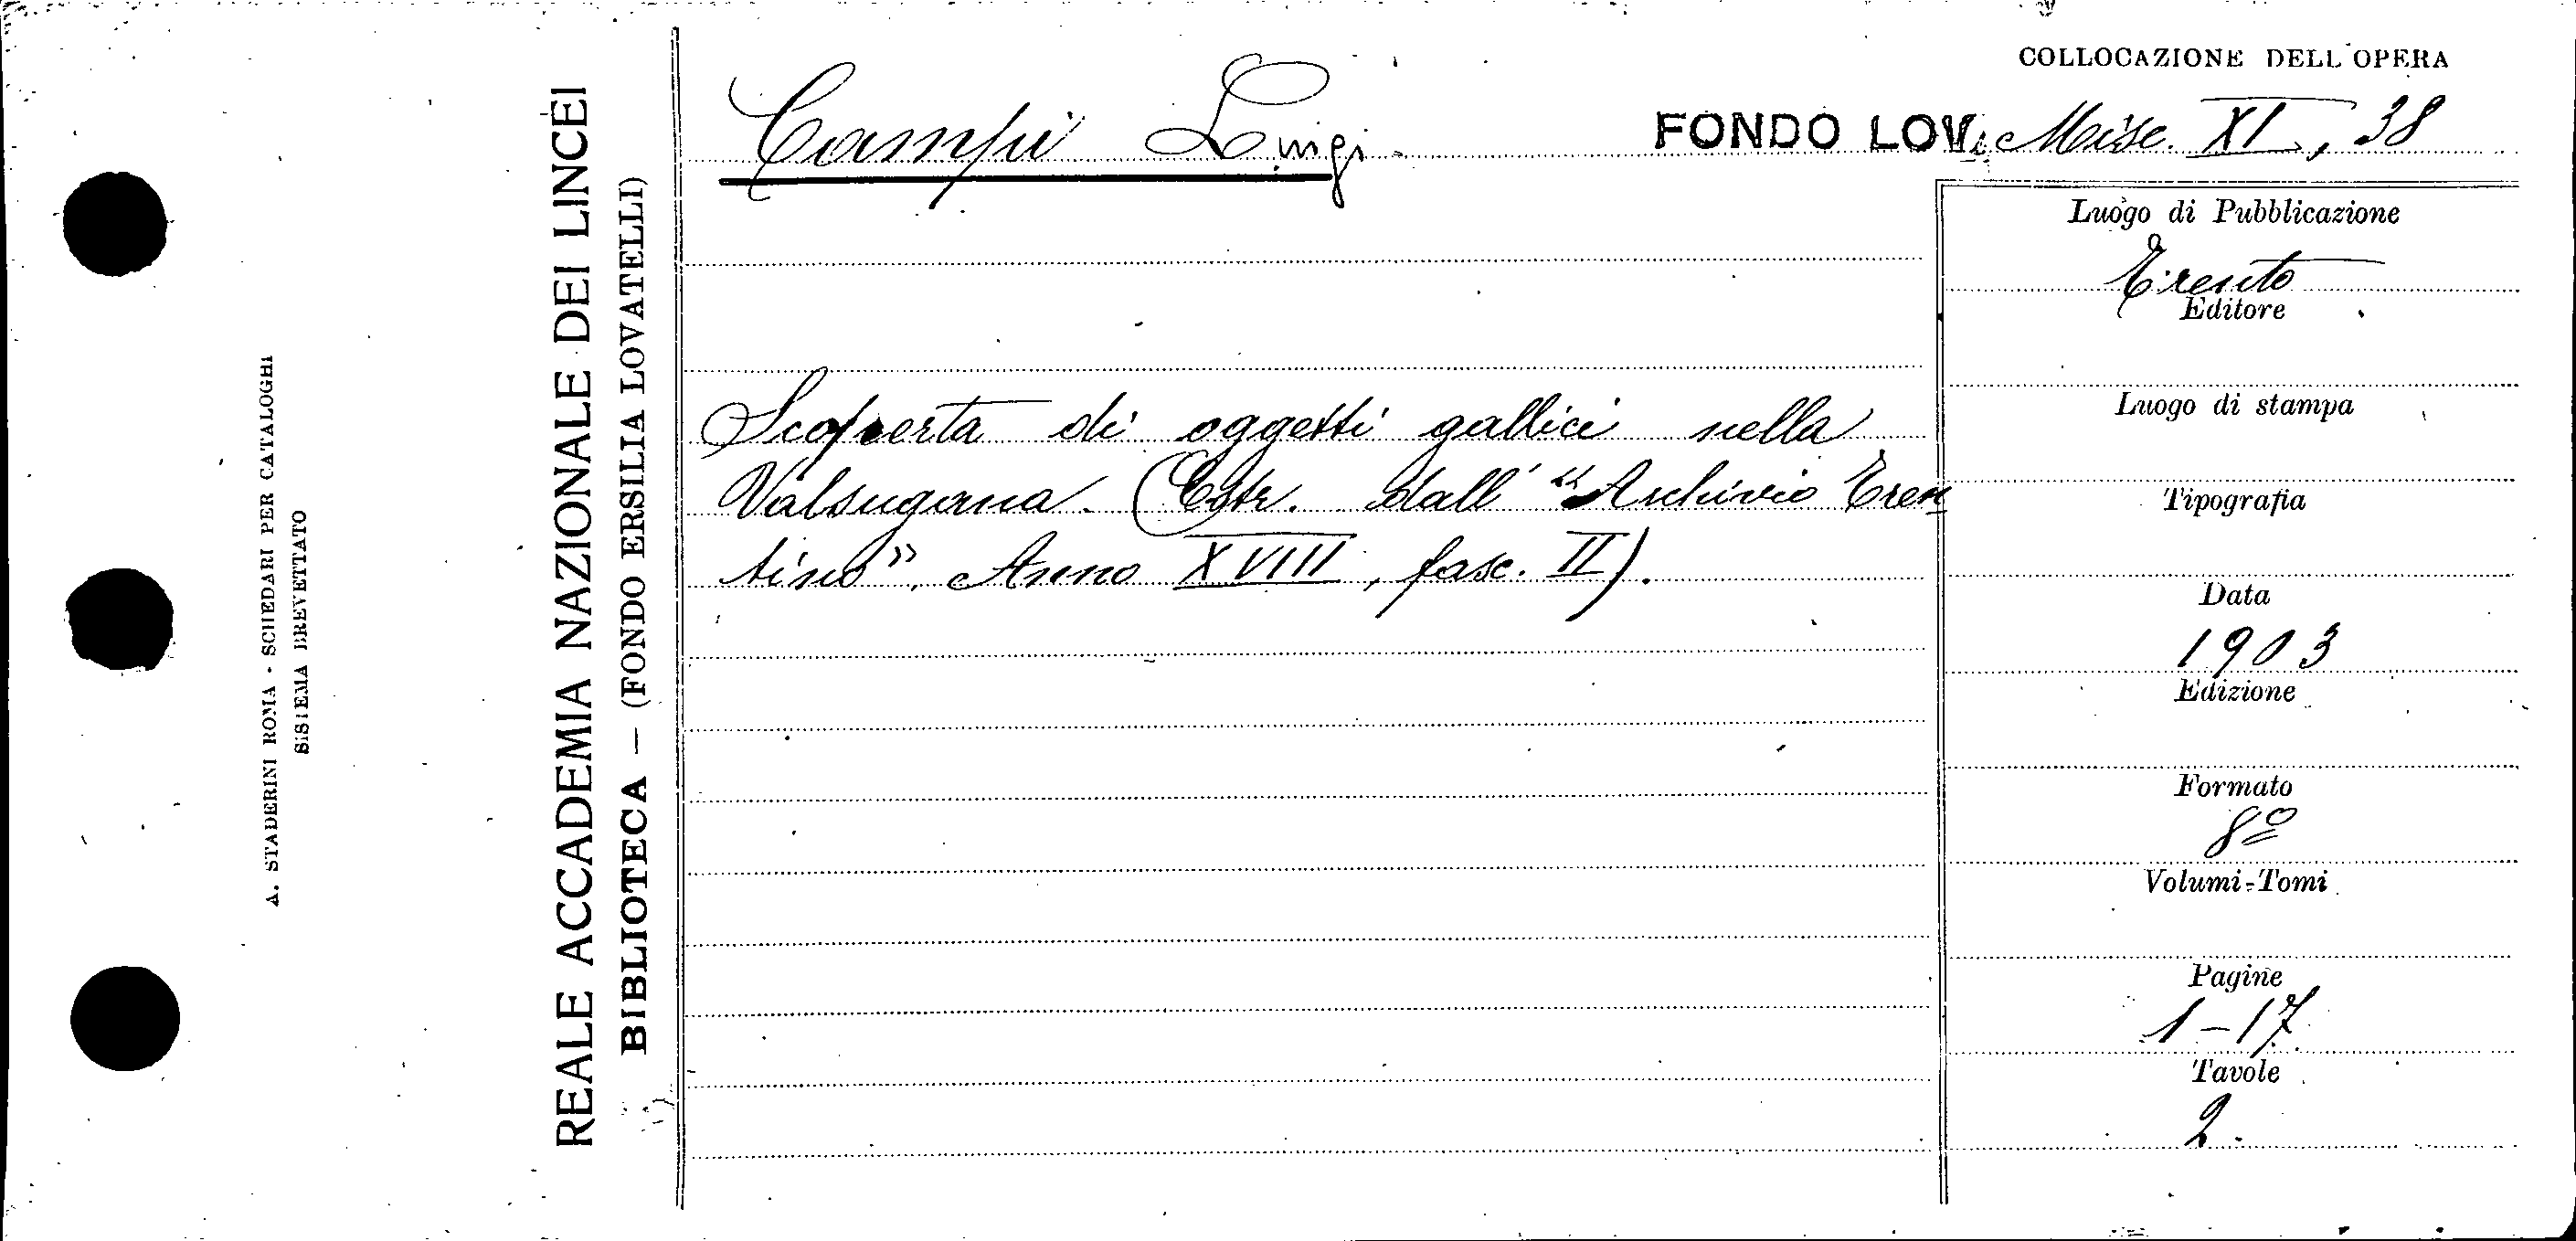 A. STADERINI ROMA - SCHEDARI PER CATALOGHI
SISTEMA BREVETTATO
REALE ACCADEMIA NAZIONALE DEI LINCEI
BIBLIOTECA — (FONDO ERSILIA LOVATELLI)
COLLOCAZIONE DELL'OPERA
Campi Luigi.
FONDO LOV. Misc. XI, 38
Scoperta di oggetti gallici nella
Valsugana. (Estr. dall' "Archivio Tren
tino", Anno XVIII, fasc. II).
Luogo di Pubblicazione
Trento
Editore
Luogo di stampa
Tipografia
Data
1903
Edizione
Formato
8º
Volumi-Tomi
Pagine
1-17.
Tavole
2.